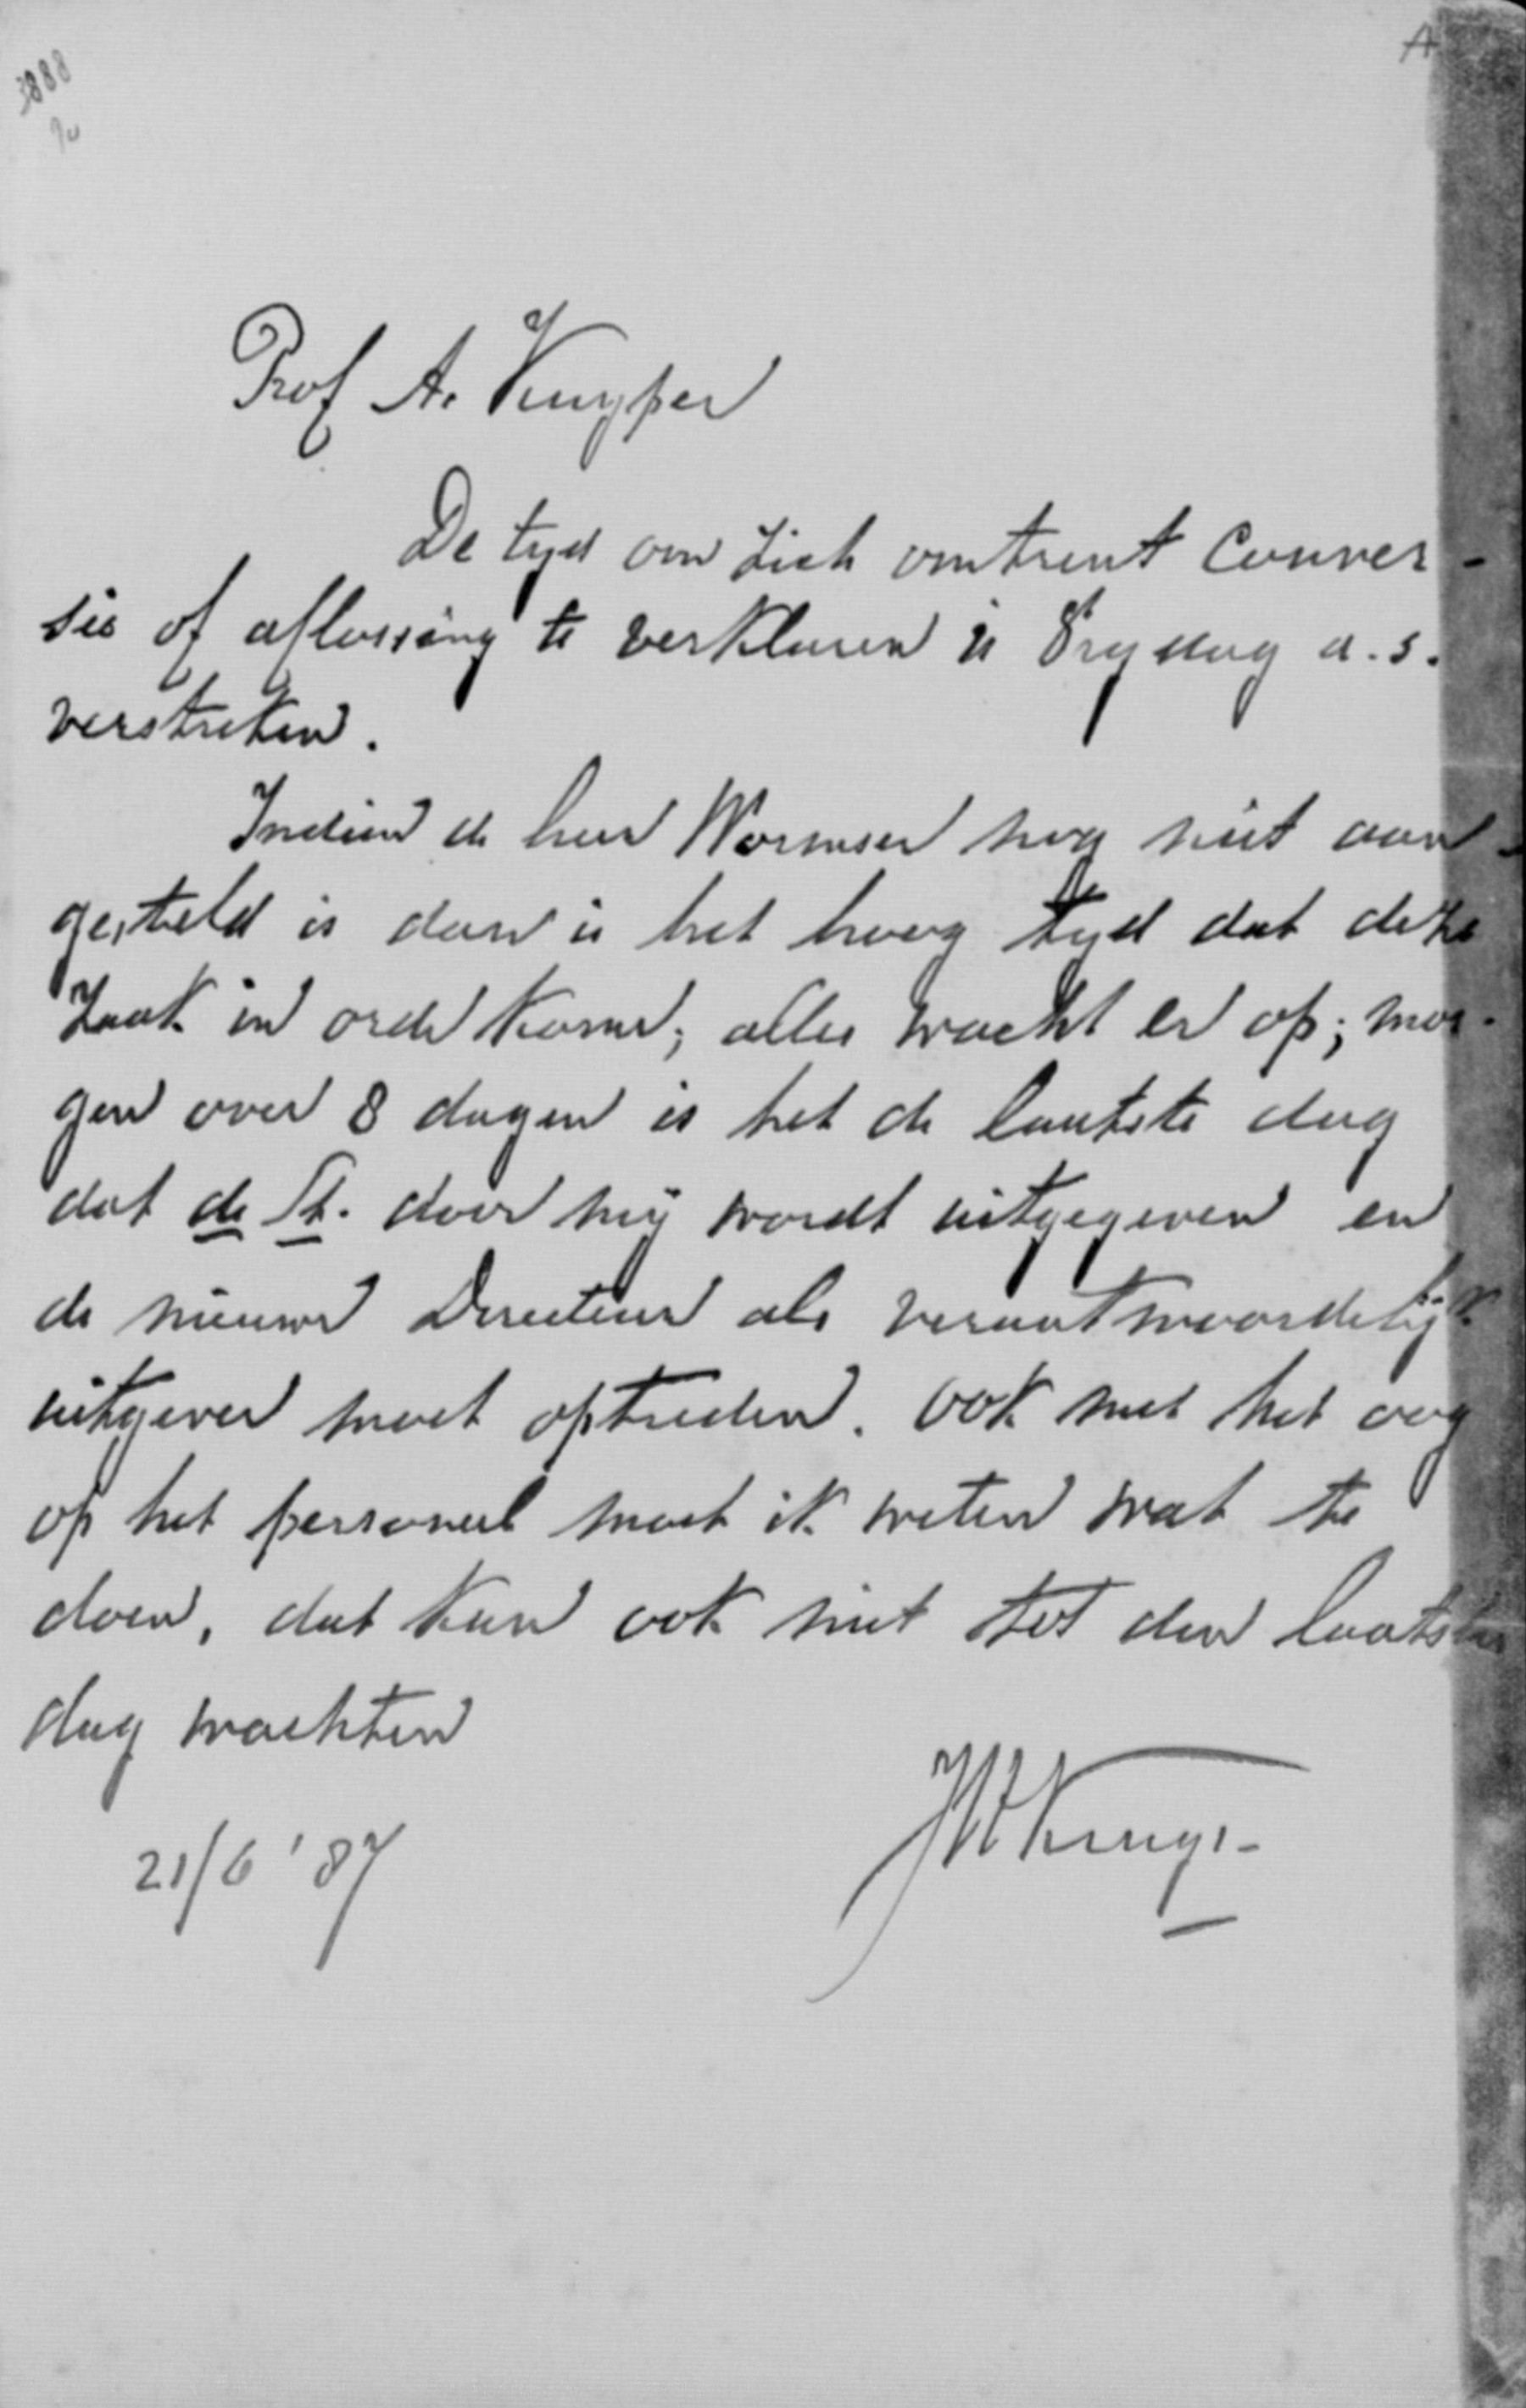 3888
A
Prof A. Kuyper
De tyd om zich omtrent Conver-
sie of aflossing te verklaren is Vrydag a.s.
verstreken.
Indien de heer Wormser nog niet aan-
gesteld is dan is het hoog tyd dat deze
zaak in orde kome; alles wacht er op; mor-
gen over 8 dagen is het de laatste dag
dat de St. door mij wordt uitgegeven en
de nieuwe Directeur als verantwoordelijk
uitgever moet optreden. Ook met het oog
op het personeel moet ik weten wat te
doen, dat kan ook niet tot den laatsten
dag wachten
21/6 '87